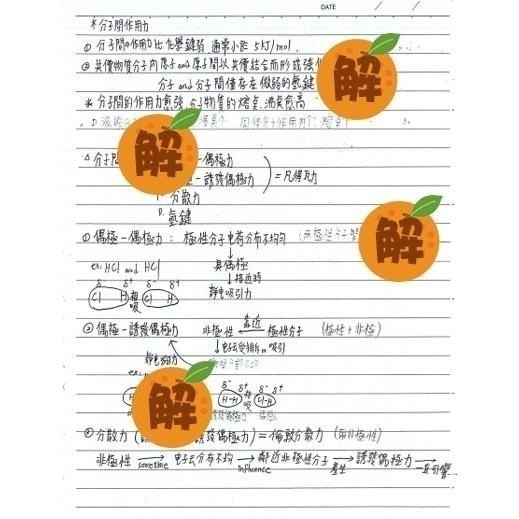 DATE / /
*分子間作用力
① 分子間の作用力比化學鍵弱 通常小於 5kJ/mol.
② 共價物質分子內原子and原子間以共價結合而形成強
分子and分子間僅存在微弱的氫鍵
* 分子間的作用力愈強,分子物質的熔點、沸點愈高
解
解
解
解
△分子間 -偶極力
-誘發偶極力 =凡得瓦力
分散力
D. 氫鍵
① 偶極-偶極力: 極性分子電荷分布不均勻 (兩極性分子
ex: HCl and HCl 具偶極
↓接近時
δ- δ+ δ- δ+ 靜電吸引力
Cl H 相吸 Cl H
② 偶極-誘發偶極力 非極性 靠近 極性分子 (極性+非極)
↓電子雲受排斥or吸引
靜電吸力
ex:
δ- δ+ δ- δ+
H-H 相吸 Cl-H
分散力 ( 誘發偶極力) =倫敦分散力 (兩非極性)
非極性 → sometime 電子雲分布不均 → influence 鄰近非極性分子 → 產生 誘發偶極力 →